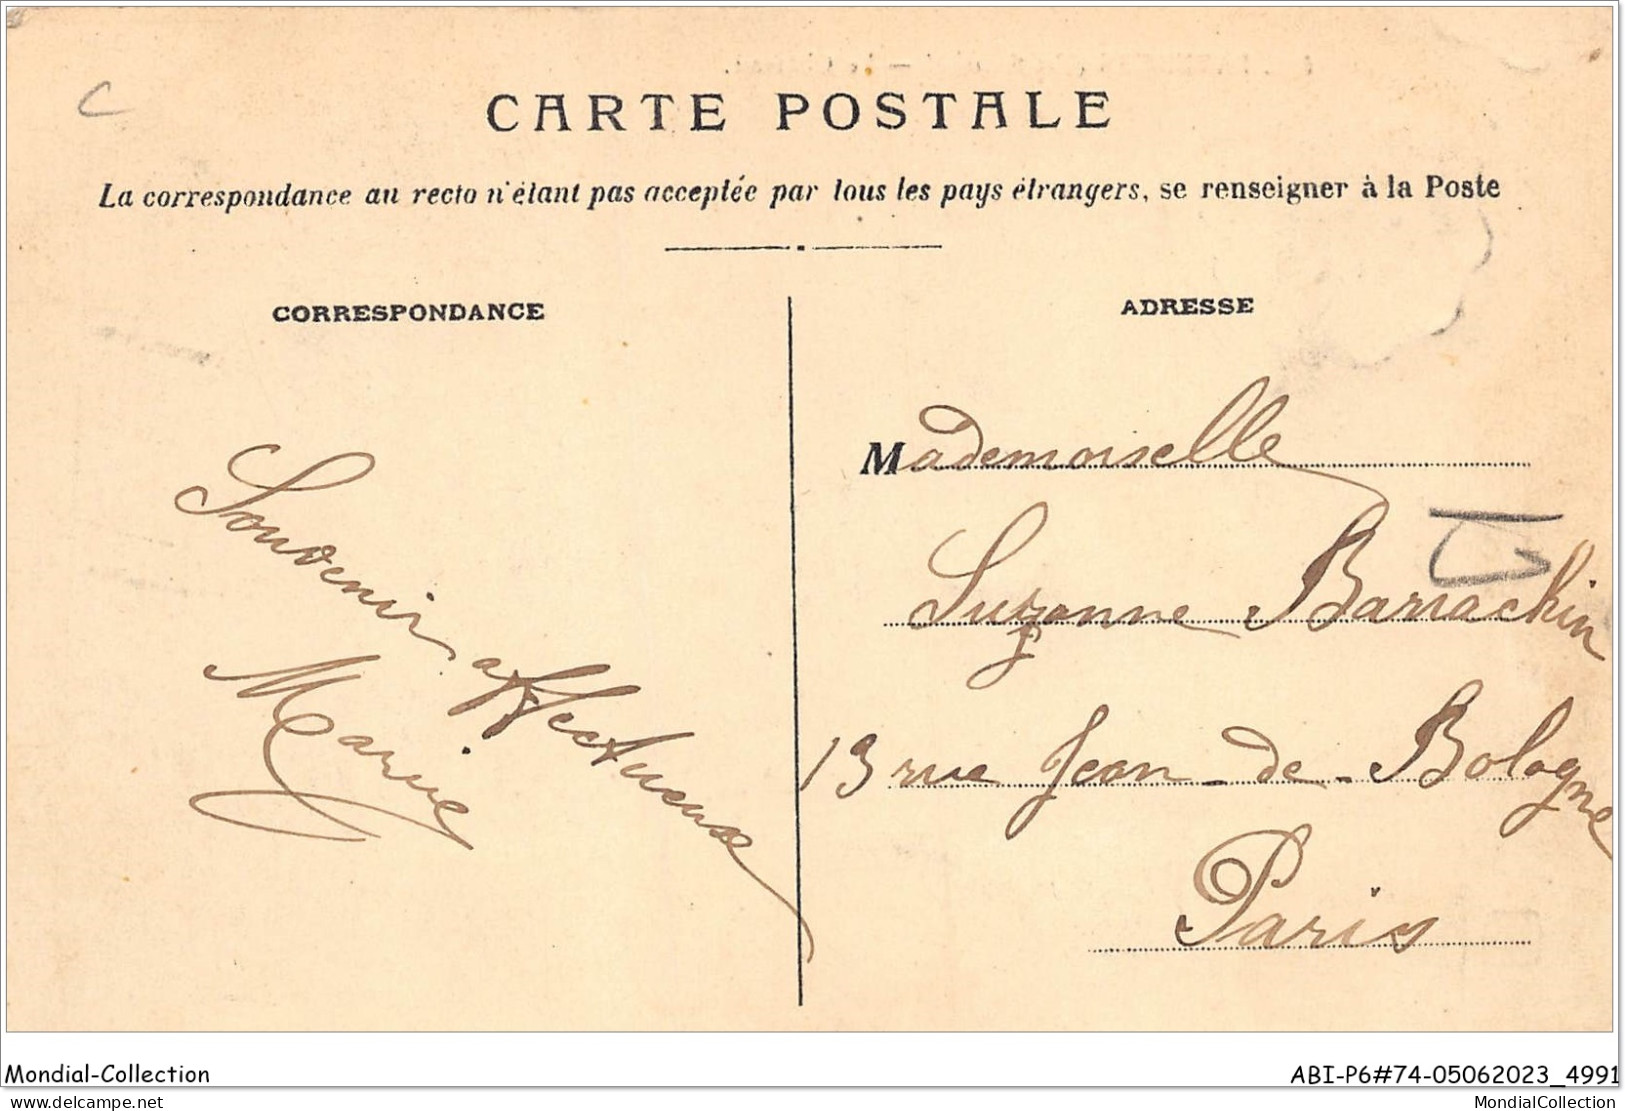 C
CARTE POSTALE
La correspondance au recto n'étant pas acceptée par tous les pays étrangers, se renseigner à la Poste
CORRESPONDANCE
Souvenir affectueux
Marie
ADRESSE
Mademoiselle
Suzanne Barrachin
13 rue Jean-de-Bologne
Paris
Mondial-Collection
ABI-P6#74-05062023_4991
delcampe.net
MondialCollection